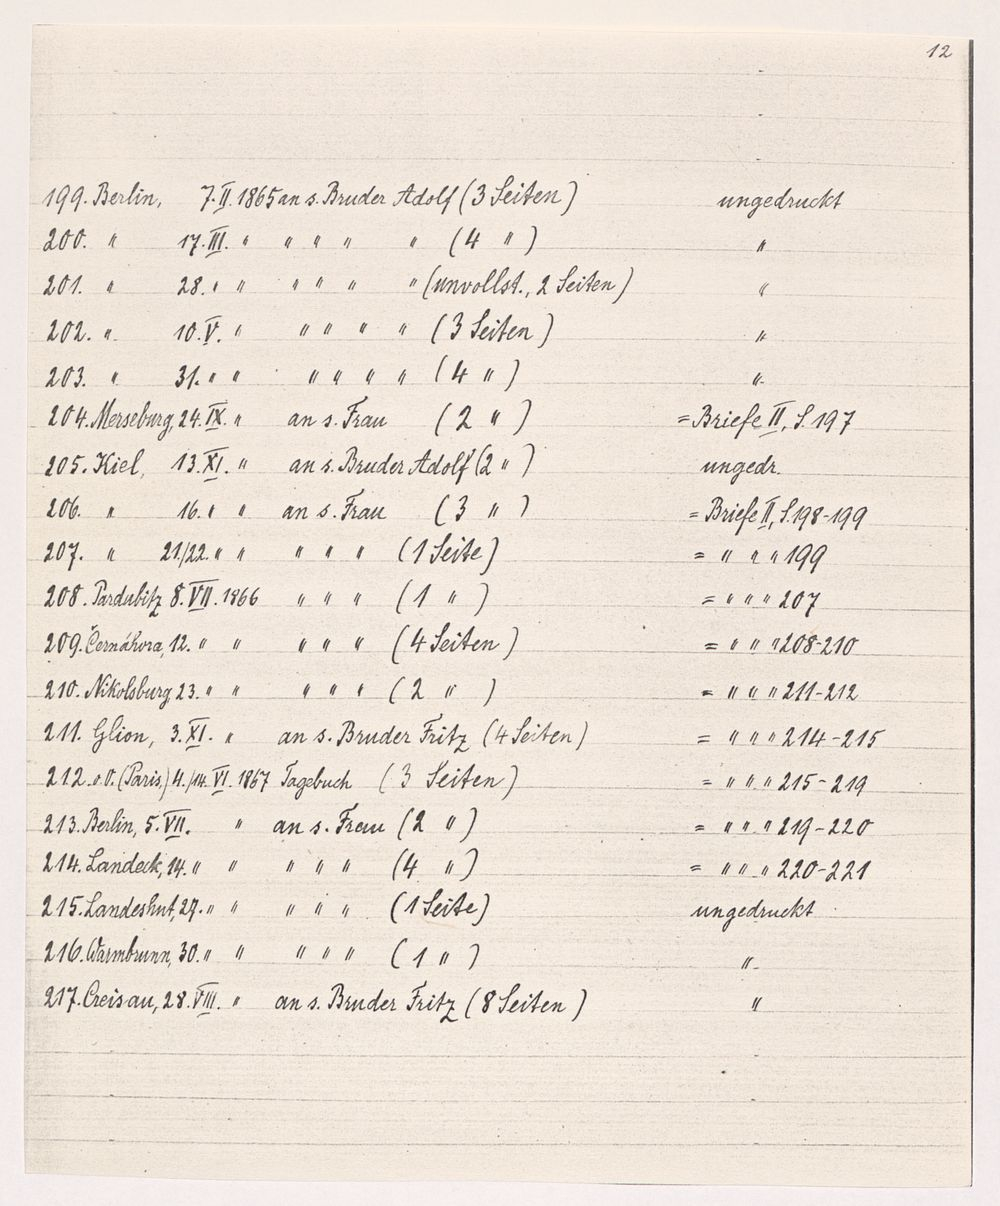 12
199. Berlin, 7.II.1865 an s. Bruder Adolf (3 Seiten) ungedruckt
200. " 17.III. " " " " " (4 ") "
201. " 28. " " " " " " (unvollst., 2 Seiten) "
202. " 10.V. " " " " " (3 Seiten) "
203. " 31. " " " " " " (4 ") "
204. Merseburg, 24.IX. " an s. Frau (2 ") = Briefe II, S. 197
205. Kiel, 13.XI. " an s. Bruder Adolf (2 ") ungedr.
206. " 16. " " an s. Frau (3 ") = Briefe II, S. 198-199
207. " 21./22. " " " " " (1 Seite) = " " " 199
208. Pardubitz 8.VII.1866 " " " (1 ") = " " " 207
209. Černáhora, 12. " " " " " (4 Seiten) = " " " 208-210
210. Nikolsburg 23. " " " " " (2 ") = " " " 211-212
211. Glion, 3.XI. " an s. Bruder Fritz (4 Seiten) = " " " 214-215
212. o.O. (Paris,) 4./14.VI.1867 Tagebuch (3 Seiten) = " " " 215-219
213. Berlin, 5.VII. " an s. Frau (2 ") = " " " 219-220
214. Landeck, 14. " " " " " (4 ") = " " " 220-221
215. Landeshut, 27. " " " " " (1 Seite) ungedruckt
216. Warmbrunn, 30. " " " " " (1 ") "
217. Creisau, 28.VIII. " an s. Bruder Fritz (8 Seiten) "